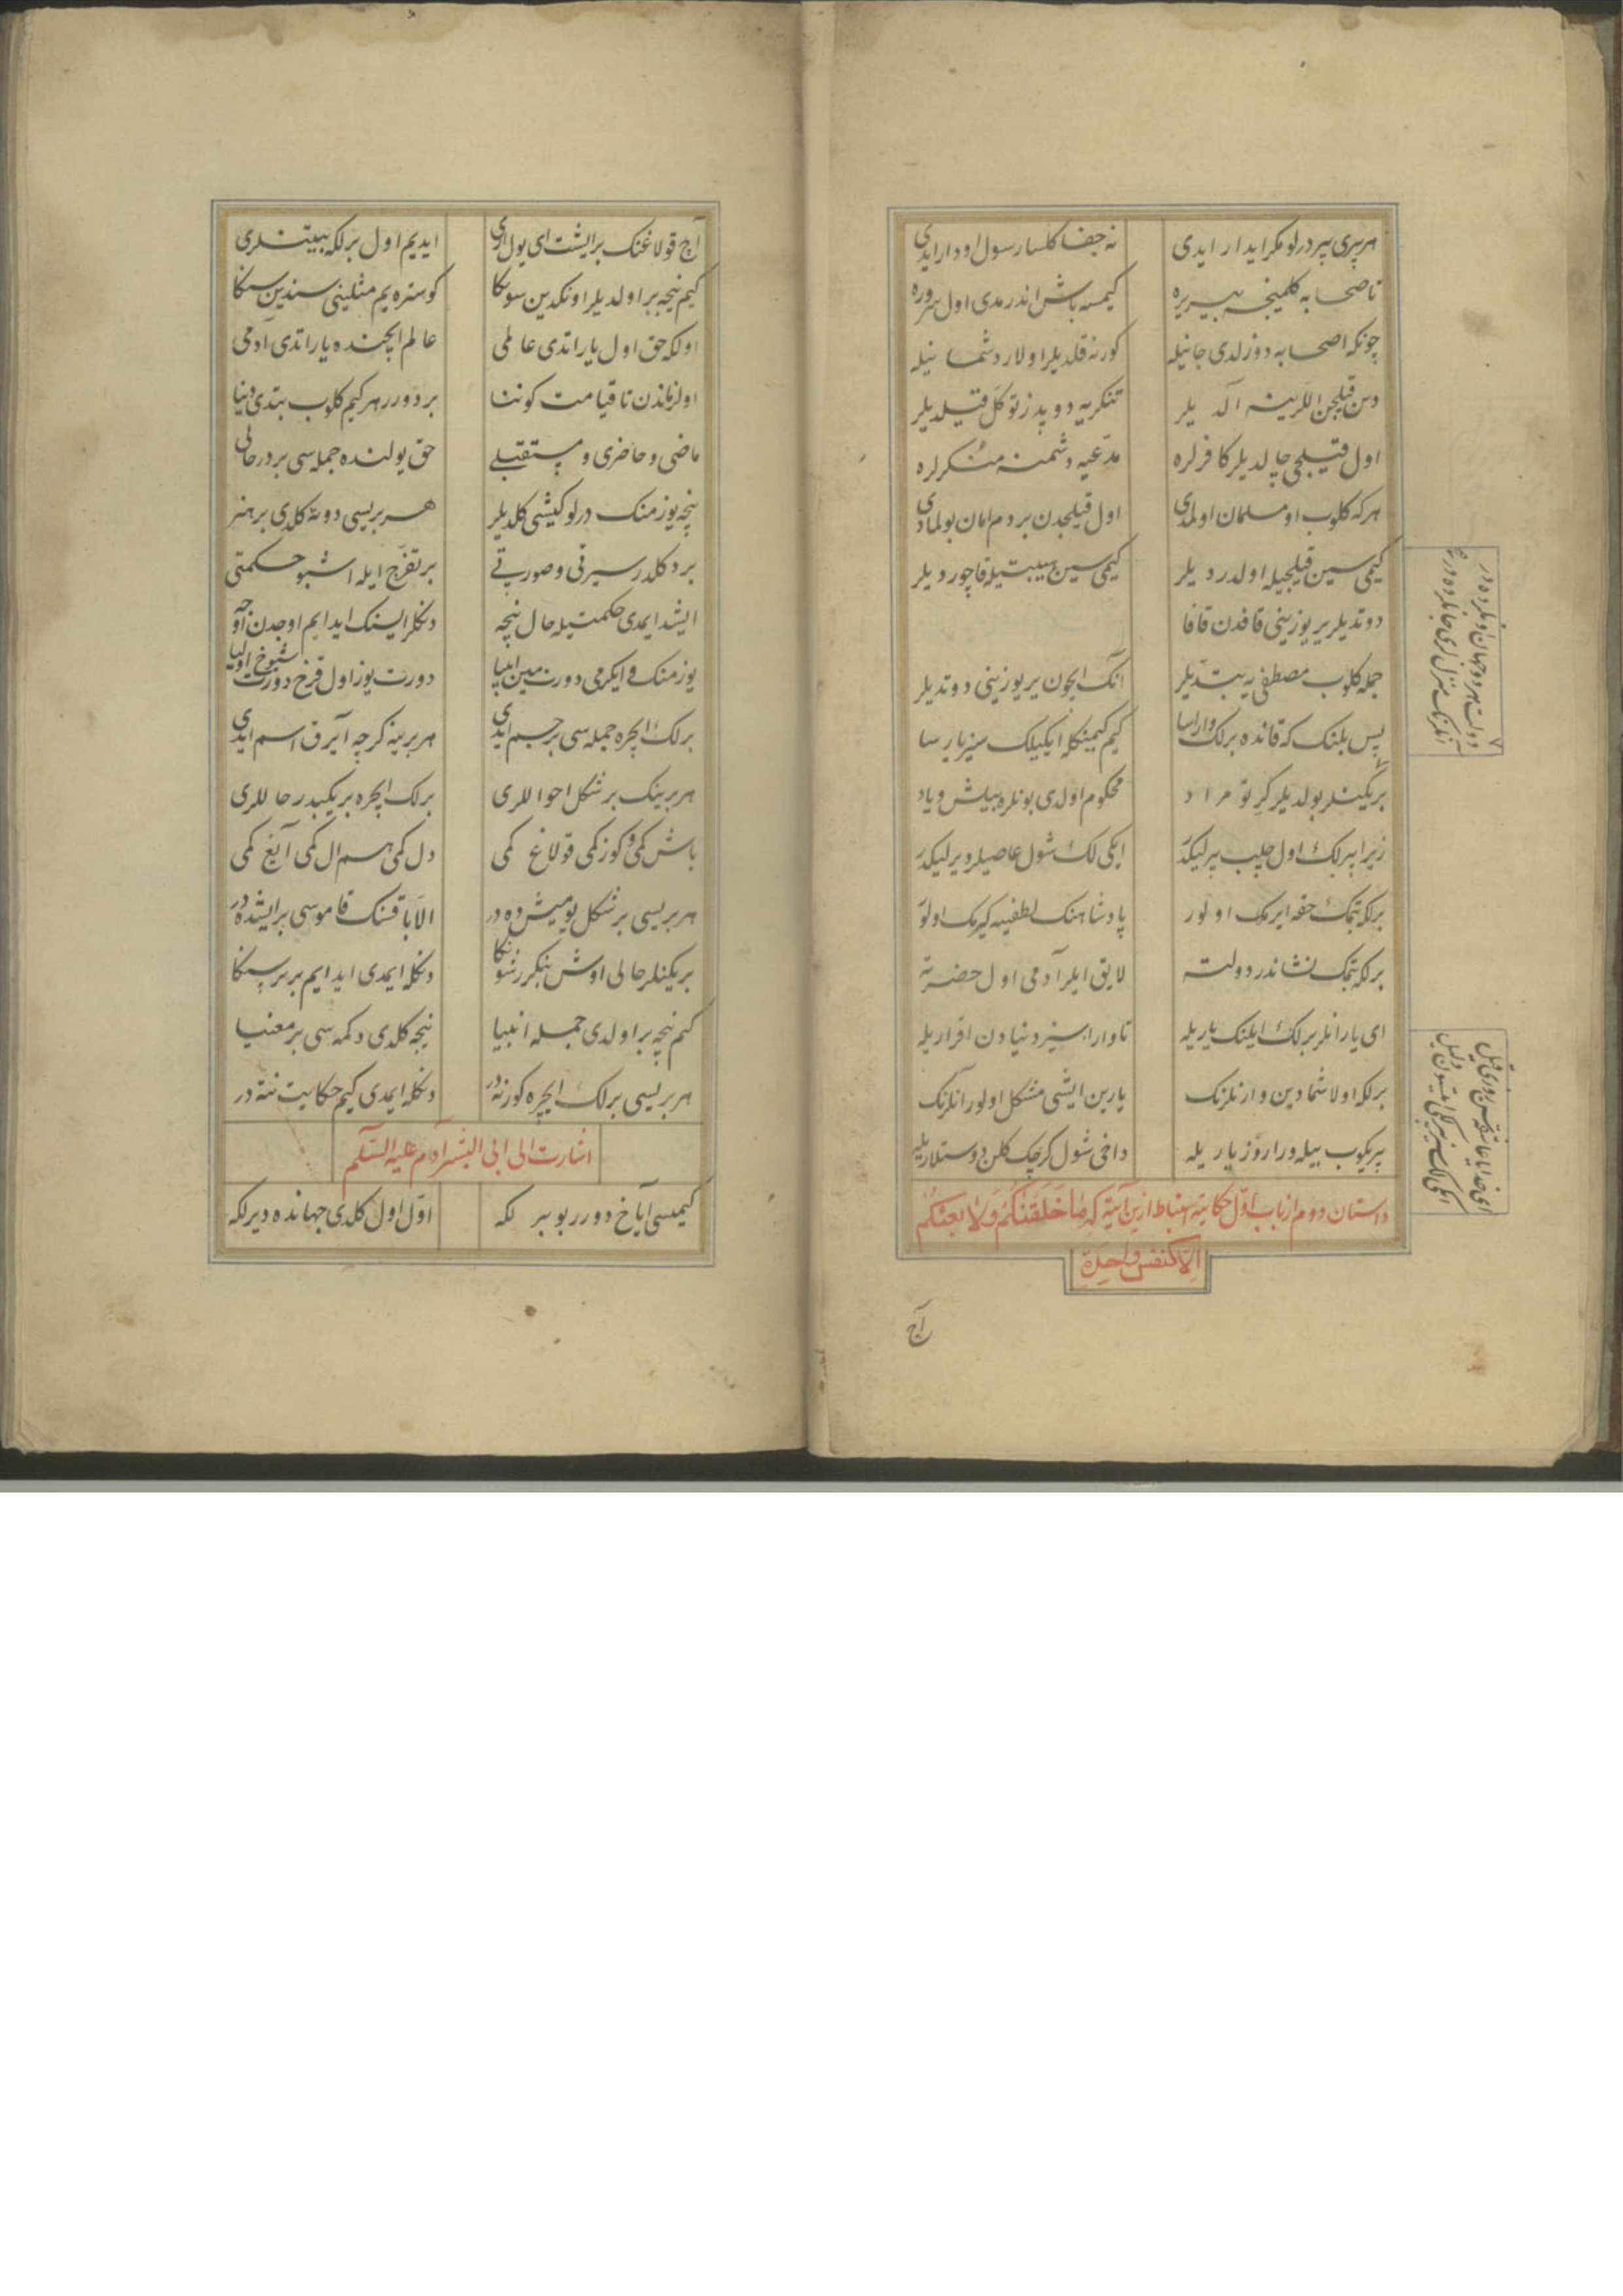 هر بری بیر درلو مکر ایدار ایدی نه جفا کلسا رسول اودار ایدی
تا صحابه کلمینجه بیر یره کیمسه باش اندرمدی اول سروره
چونکه اصحابه دوزلدی جانیله کورنه قلدیلر اولار دشمانیله
دین قیلجن اللرینه آلدیلر تنکریه دوپدز توکل قیلدیلر
اول قیلجی چالدیلر کافرلره مدعیه دشمنه منکرلره
هر که کلوب او مسلمان اولمدی اول قیلجدن بر دم امان بولمادی
کیمی سین قیلجیله اولدردیلر کیمی سین هیبتیله قاچوردیلر
دوتدیلر یر یوزینی قافدن قافا
جمله کلوب مصطفی یه بتدیلر آنک ایچون یر یوزینی دوتدیلر
پس بلنک که قانده برلک وارایسا کیم کیمینکله ایکیلک سیز یارسا
بریکینلر بولدیلر کر تو مراد محکوم اولدی بونلره بیلش و یاد
زیرا بیرلک اول چلب بیرلیکدر ایکی لک شول عاصیلر ویرلیکدر
برلکه بتمک حقه ایرمک اولور پادشاهنک لطفینه کیرمک اولور
برلکه بتمک نشاندر دولته لایق ایلر آدمی اول حضرته
ای یارانلر برلک ایلنک یاریله تا واراسیز دنیادن اقراریله
برلکه اولاشمادین وارنلرنک یارین ایشی مشکل اولور آنلرنک
بیریکوب بیله وراروز یاریله داخی شول کرچک کلن دوستلاریله
داستان دوم از باب اول حکایته استنباط ازین آیته که ما خلقکم ولا بعثکم
الا کنفس واحدة
آچ
آچ قولاغنک بر ایشت ای یول اری ایدیم اول برلکه بیتنلری
کیم نیجه بر اولدیلر اونکدین سونکا کوستره یم مثلینی سندین سنکا
اولکه حق اول یاراتدی عالمی عالم ایچنده یاراتدی آدمی
اول زماندن تا قیامت کوننا بر دوررر هر کیم کلوب بتدی دنیا
ماضی و حاضری و مستقبلی حق یولنده جمله سی بردر حالی
نیچه یوز منک درلو کیشی کلدیلر هر بریسی دونه کلدی بر هنر
برد کلدر سیرتی و صورتی بر تفرج ایله اشبو حکمتی
ایشد ایمدی حکمتیله حال نیچه دنکلر ایسنک ایدایم اوجدن اوجه
یوز منک و ایکرمی دورت مین انبیا دورت یوز اول قرخ دورت شیوخ اولیا
برلک ایچره جمله سی بر جسم ایدی هر برینه کرچه آیرق اسم ایدی
هر برینک بر شکل احواللری برلک ایچره بریکیدر حاللری
باش کمی و کوز کمی قولاغ کمی دل کمی هم ال کمی آیغ کمی
هر بریسی بر شکل یومیش ده در الا باقسنک قاموسی بر ایشده در
بریکنلر حالی اوش بنکزر شونکا دنکله ایمدی ایدایم بر بر سنکا
کیم نیچه بر اولدی جمله انبیا نیجه کلدی دکمه سی بر معنیا
هر بریسی برلک ایچره کورنه در دنکله ایمدی کیم حکایت ننه در
اشارت الی ابی البشر آدم علیه السلم
کیمسی آیاخ دورر بو بیرلکه اول اول کلدی جهانده دیرلکه